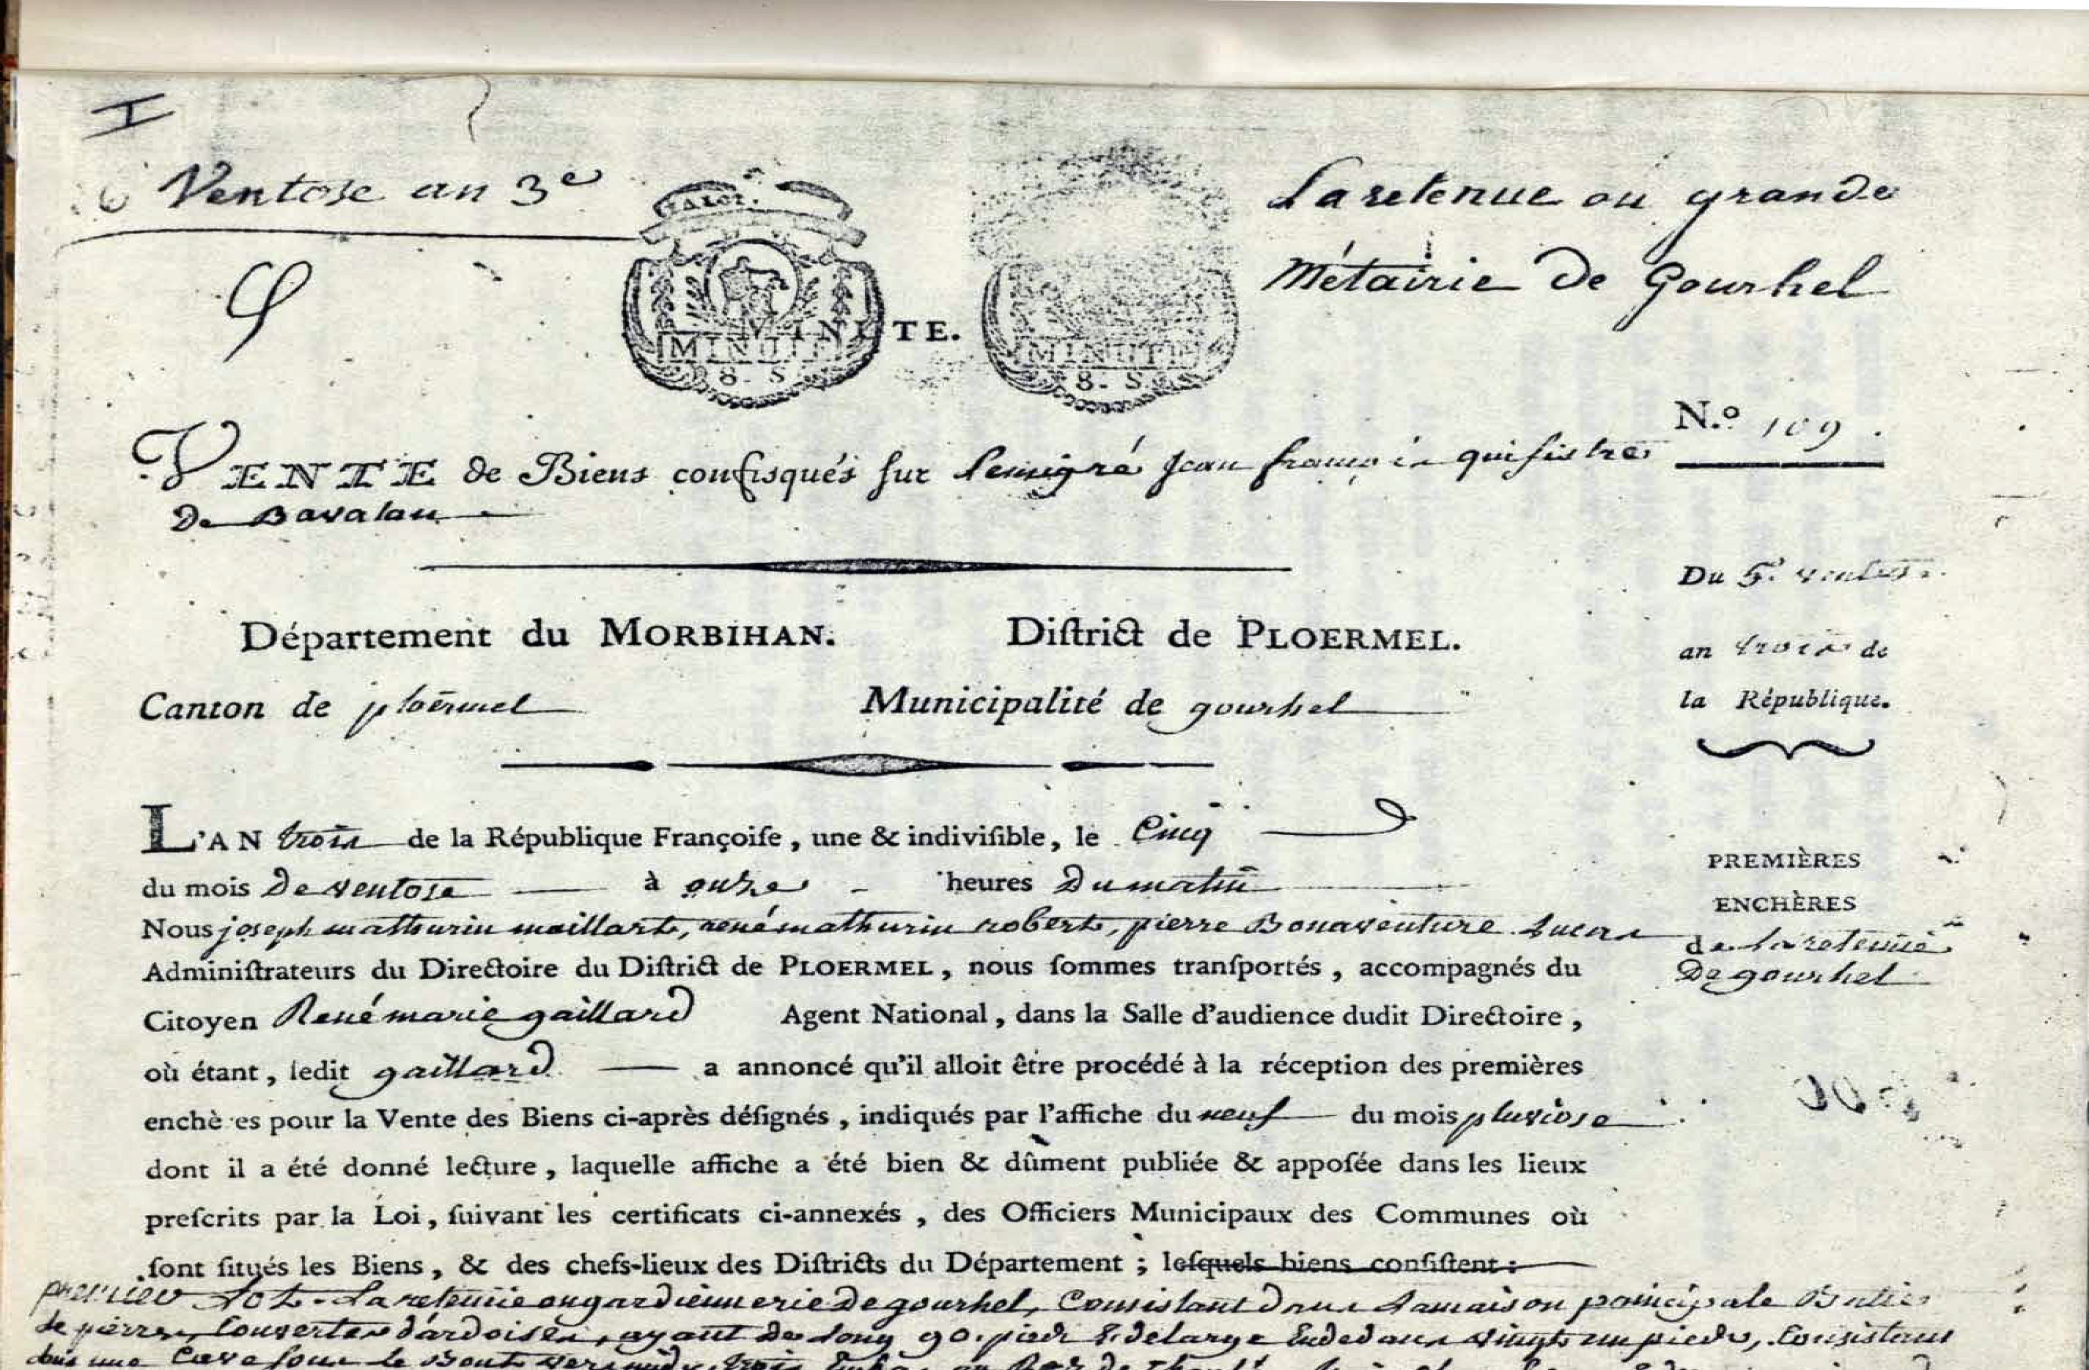 Ventose an 3e
La retenue ou grande
Métairie de Gourhel
MINUTE.
MINUTE
8. S
MINUTE
8. S.
N.o 109.
VENTE de Biens confisqués sur l'emigré Jean françois quifistre
De Bavalan
Du 5.e ventose
an trois de
la République.
Département du MORBIHAN. Diſtrict de PLOERMEL.
Canton de ploërmel Municipalité de gourhel
L'AN trois de la République Françoiſe, une & indiviſible, le Cinq
du mois De ventose à onze heures Du matin
Nous joseph mathurin maillart, rené mathurin robert, pierre Bonaventure Lucas
Adminiſtrateurs du Directoire du Diſtrict de PLOERMEL, nous ſommes tranſportés, accompagnés du
Citoyen René marie gaillard Agent National, dans la Salle d'audience dudit Directoire,
où étant, ledit gaillard a annoncé qu'il alloit être procédé à la réception des premières
enchè es pour la Vente des Biens ci-après déſignés, indiqués par l'affiche du neuf du mois pluviose
dont il a été donné lecture, laquelle affiche a été bien & dûment publiée & appoſée dans les lieux
preſcrits par la Loi, ſuivant les certificats ci-annexés, des Officiers Municipaux des Communes où
ſont ſitués les Biens, & des chefs-lieux des Diſtricts du Département ; leſquels biens conſiſtent :
PREMIÈRES
ENCHÈRES
de La retenüe
De gourhel
premier Lot. La retenüe ou gardiennerie De gourhel, Consistant Dans La maison principale Batie
de pierres, Couverte d'ardoises, ayant de Long 90. pieds & de large En dedans vingt un pieds, Consistant
dans une Cave sous le Bout vers